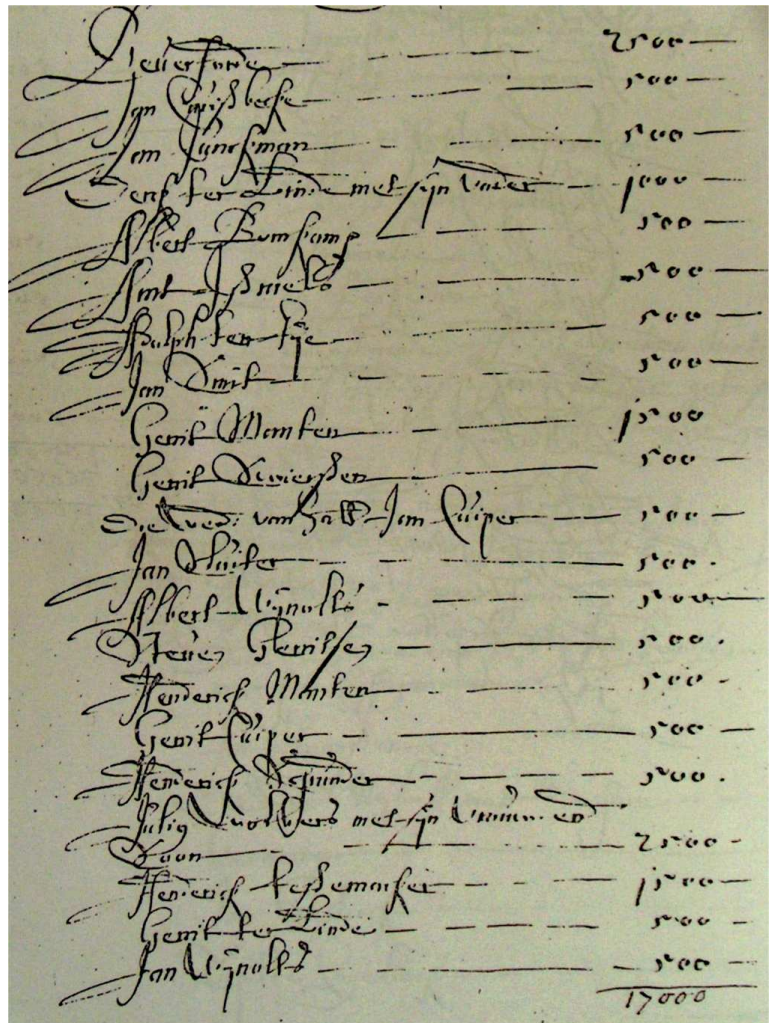 Jan Cuijsberke 500
Jan Junckman 500
Derck ter Linde met sijn vader 1000
Albert Bomkamp 500
Arnt 500
Roloph ten Eije 500
Jan Smit 500
Gerrit Manten 1500
Gerrit Swiersen 500
Die wed: van za: Jan Cuiper 500
Jan Sluiter 500
Albert Wijnolts 500
Steven Gerritsen 500
Henderick Manten 500
Gerrit Cuiper 500
Henderick 500
Wolbers met sijn en
Soon 2500
Henderick Kessemaker 1500
Gerrit ter Linde 500
Jan Wijnolts 500
17000